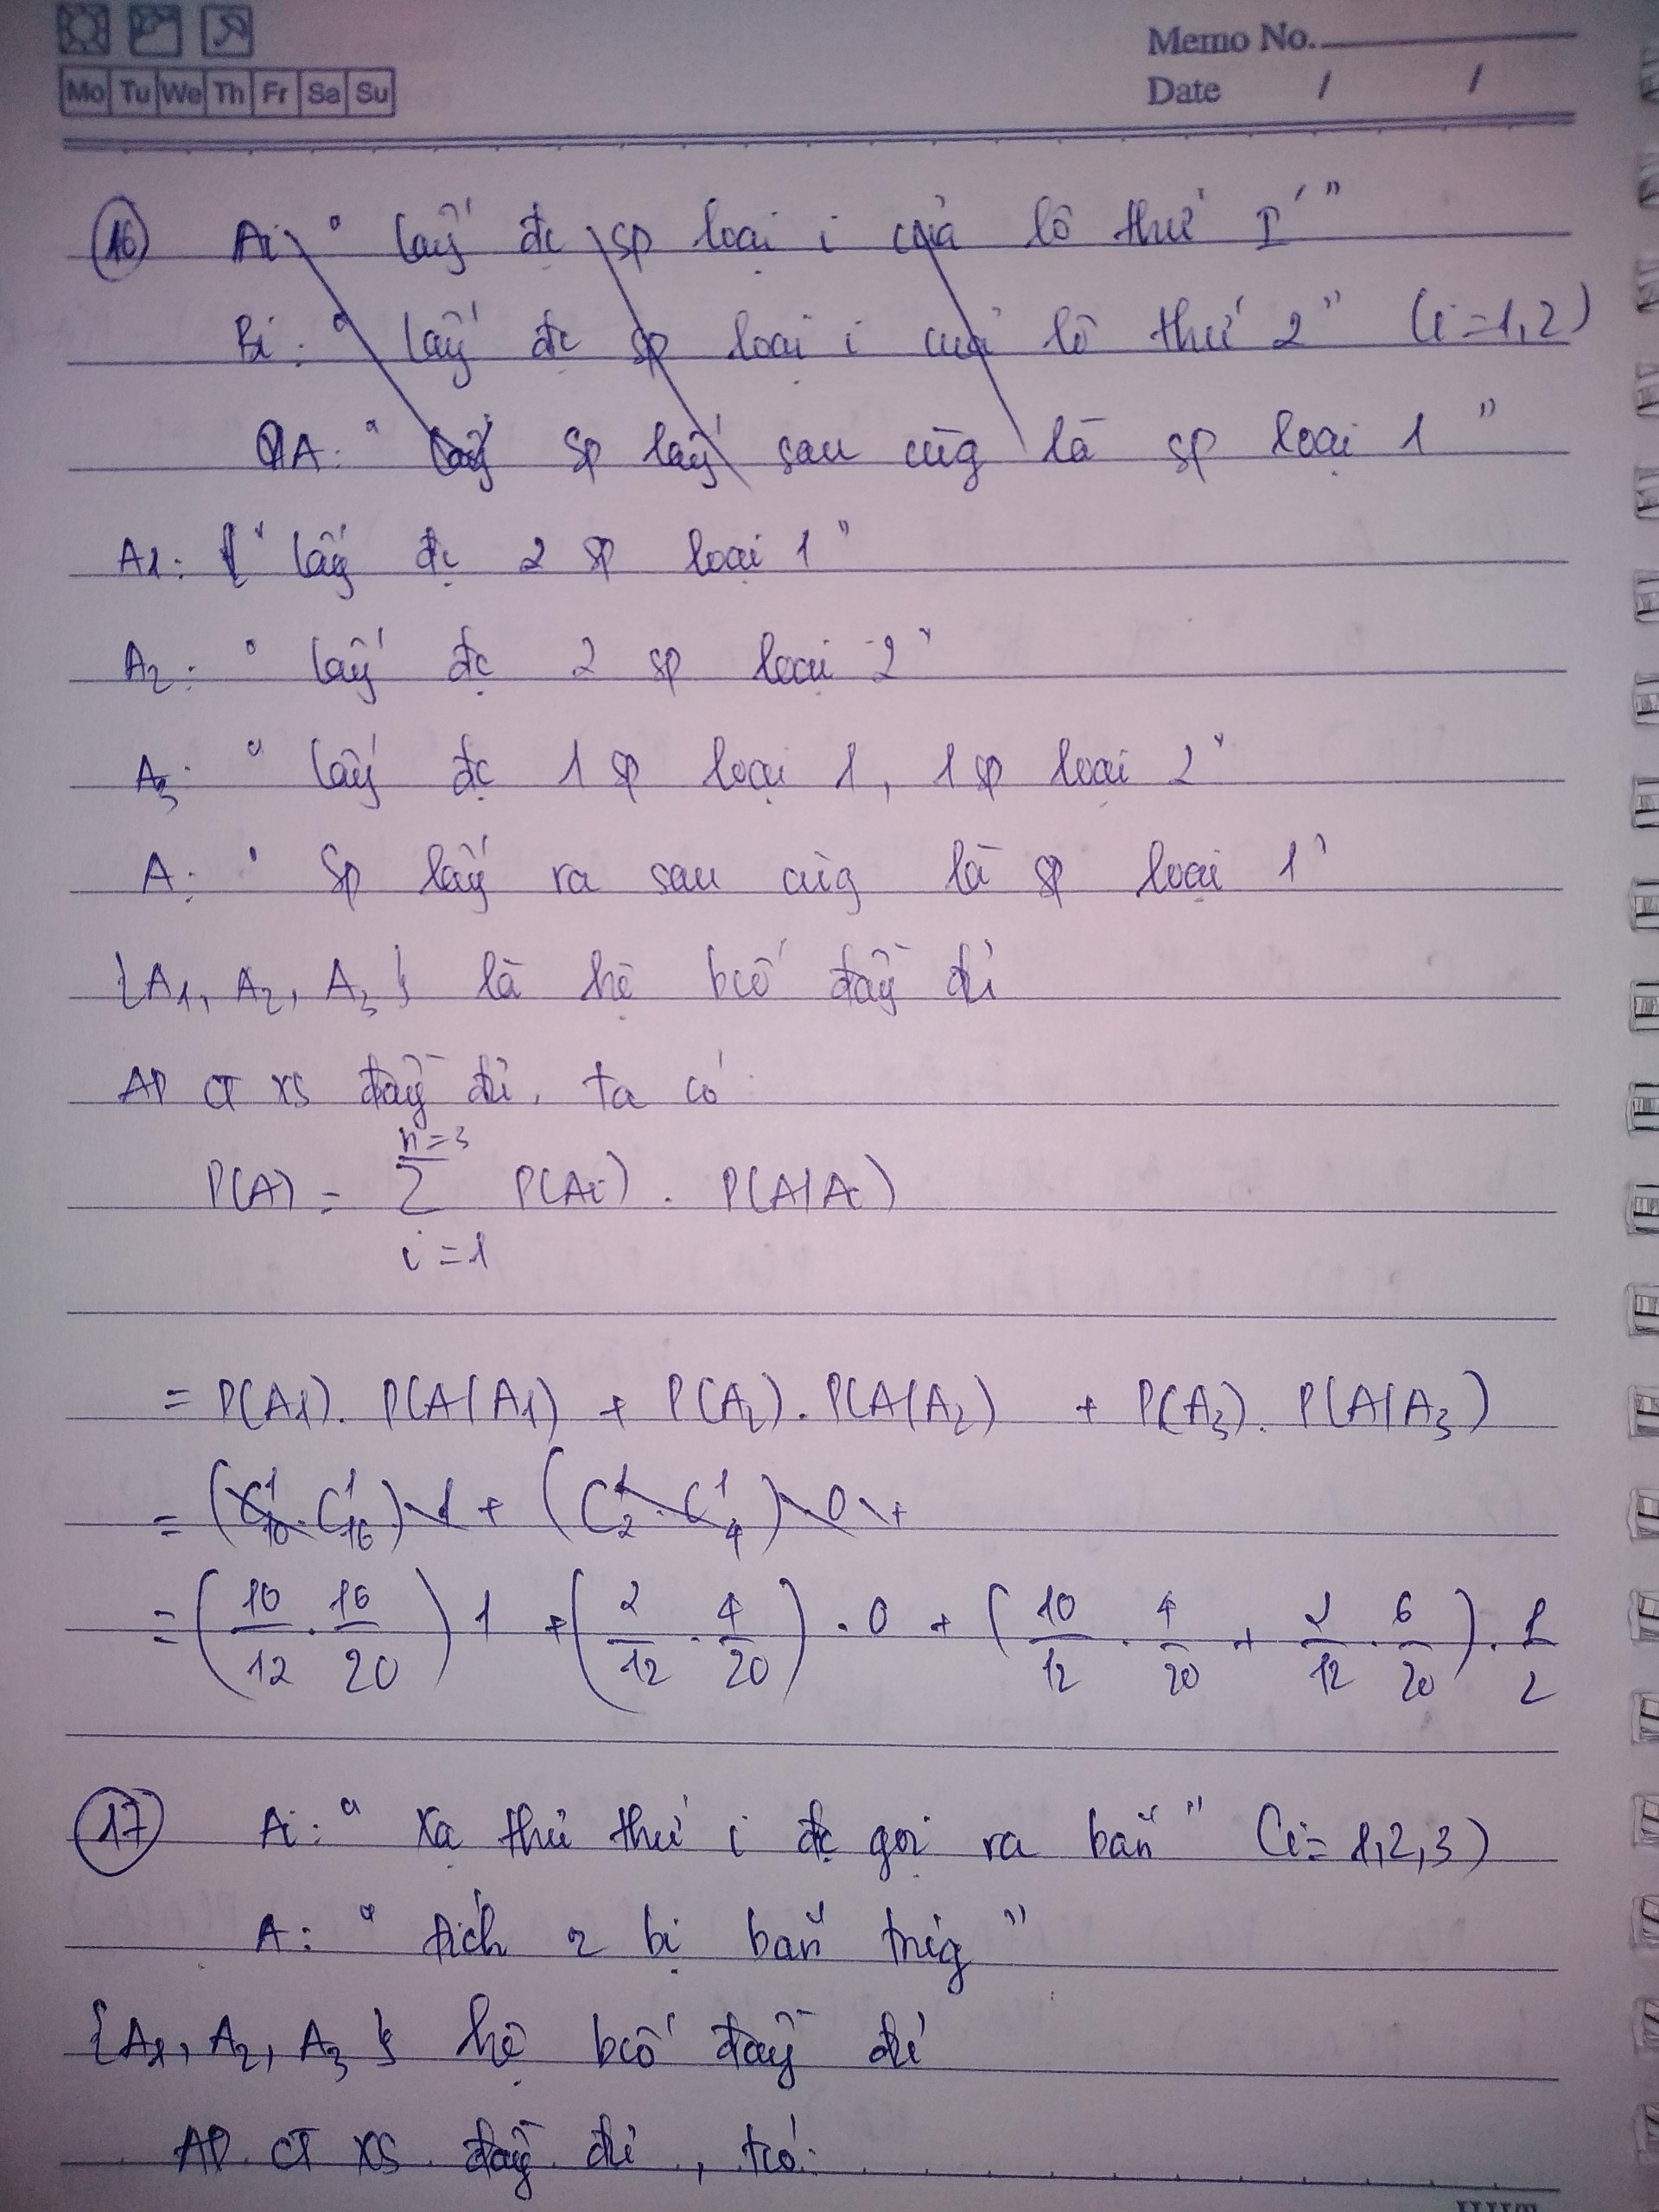 Memo No.
Mo Tu We Th Fr Sa Su
Date / /
16 Ai: "lấy đc sp loại i của lô thứ I"
Bi: "lấy đc sp loại i của lô thứ 2" (i=1,2)
A: "lấy sp lấy sau cùg là sp loại 1"
A1: "lấy đc 2 sp loại 1"
A2: "lấy đc 2 sp loại 2"
A3: "lấy đc 1 sp loại 1, 1 sp loại 2"
A: "Sp lấy ra sau cùg là sp loại 1"
{A1, A2, A3} là hệ bcố đầy đủ
AD CT XS đầy đủ, ta có:
n=3
P(A) = Σ P(Ai) . P(A|Ai)
i=1
= P(A1). P(A|A1) + P(A2). P(A|A2) + P(A3). P(A|A3)
= (C¹₁₀ . C¹₁₆) . 1 + (C¹₂ . C¹₄) . 0 +
= (10/12 . 16/20) 1 + (2/12 . 4/20) . 0 + (10/12 . 4/20 + 2/12 . 6/20) . 1/2
17 Ai: "Xạ thủ thứ i đc gọi ra bắn" (i=1,2,3)
A: "đích 2 bị bắn trúg"
{A1, A2, A3} hệ bcố đầy đủ
AD CT XS đầy đủ, tcó: